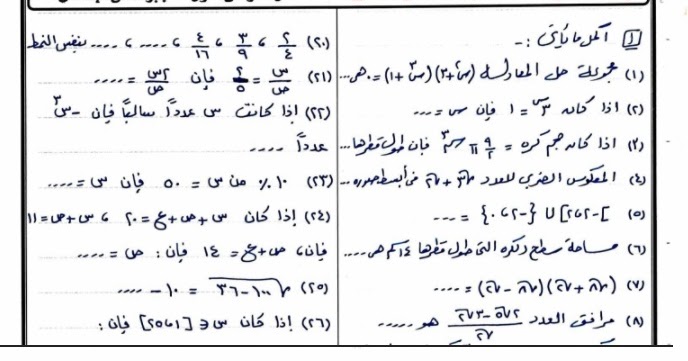 [١] أكمل ما يأتى :-
(١) مجموعة حل المعادلة (س² + ٣)(س³ + ١) = ٠ هى ...
(٢) إذا كان ٣^س = ١ فإن س = ...
(٣) إذا كان حجم كرة = ٩/٢ π سم³ فإن طول قطرها ...
(٤) المعكوس الضربى للعدد √٣ + √٢ فى أبسط صورة ...
(٥) ]-٢،٢] ∪ {-٢،٠} = ...
(٦) مساحة سطح الكرة التى طول قطرها ١٤ سم هى ....
(٧) (√٨ + √٢)(√٨ - √٢) = ....
(٨) مرافق العدد هو .....
(٢٠) ٢/٤ ، ٣/٩ ، ٤/١٦ ، .... ، .... بنفس النمط
(٢١) س/ص = ٢/٥ فإن ٢س/ص = ....
(٢٢) إذا كانت س عدداً سالباً فإن -س³
عدداً ....
(٢٣) ١٠ % من س = ٥٠ فإن س = ....
(٢٤) إذا كان س + ص + ع = ٢٠ ، س + ص = ١١
فإن ، ص + ع = ١٤ فإن : ص = ....
(٢٥) √(١٠٠ - ٣٦) = ١٠ - ....
(٢٦) إذا كان س ∈ [١،٥] فإن :